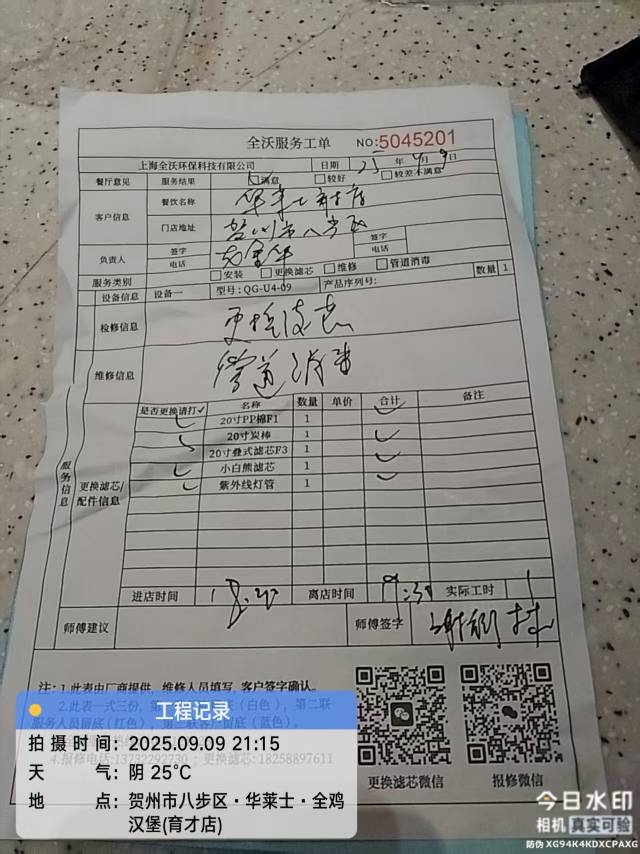 全沃服务工单 NO:5045201
上海全沃环保科技有限公司 日期 25 年 9 月 9 日
餐厅意见 服务结果 满意 较好 较差不满意
客户信息 餐饮名称 华莱士
门店地址 贺州市八步区
负责人 签字 签字
电话 电话
服务类别 安装 更换滤芯 维修 管道消毒
设备信息 设备一 型号: QG-U4-09 产品序列号: 数量 1
检修信息 更换滤芯
维修信息 管道消毒
服务信息
更换滤芯/配件信息
是否更换请打✓ 名称 数量 单价 合计 备注
✓ 20寸PP棉F1 1 ✓
✓ 20寸炭棒 1 ✓
20寸叠式滤芯F3 1 ✓
✓ 小白熊滤芯 1 ✓
✓ 紫外线灯管 1
进店时间 18:20 离店时间 19:30 实际工时 1
师傅建议 师傅签字
注: 1.此表由厂商提供,维修人员填写,客户签字确认。
2.此表一式三份,
(白色),第二联
服务人员留底(红色),
留底(蓝色)。
4.报修电话:13732292730 ;更换滤芯:18258897611
更换滤芯微信 报修微信
工程记录
拍摄时间: 2025.09.09 21:15
天气: 阴 25℃
地点: 贺州市八步区·华莱士·全鸡汉堡(育才店)
今日水印
相机 真实可验
防伪 XG94K4KDXCPAXG